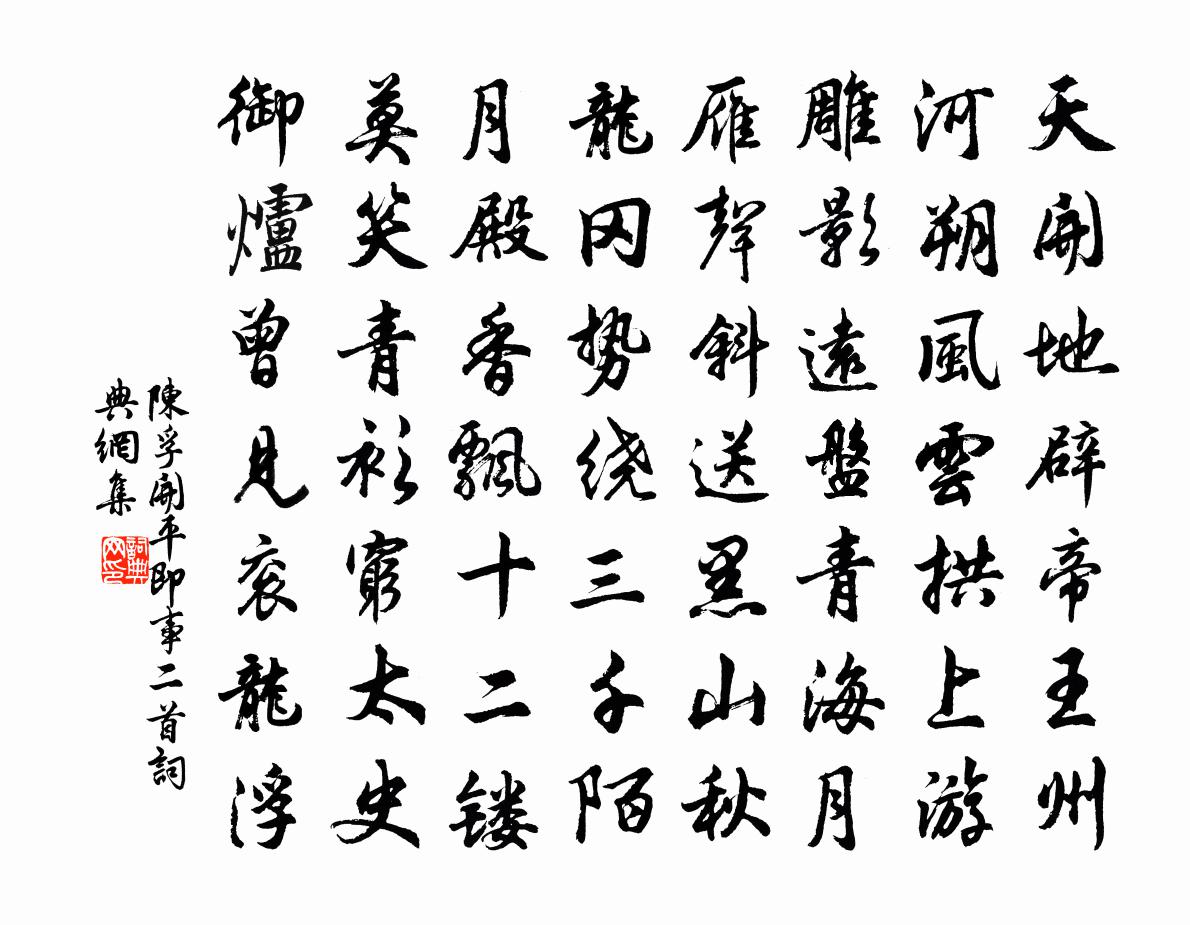 天開地辟帝王州
河朔風雲拱上游
雕影遠盤青海月
雁聲斜送黑山秋
龍冈势绕三千陌
月殿香飄十二镂
莫笑青衫窮太史
御爐曾見衮龍浮
陳孚開平即事二首詞
典網集
詞典
网印